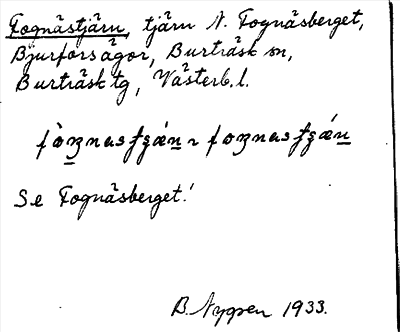 Fognästjärn, tjärn N. Fognäsberget,
Bjurforsågor, Burträsk sn,
Burträsk tg, Västerb. l.
Se Fognäsberget!
B. Nygren 1933.